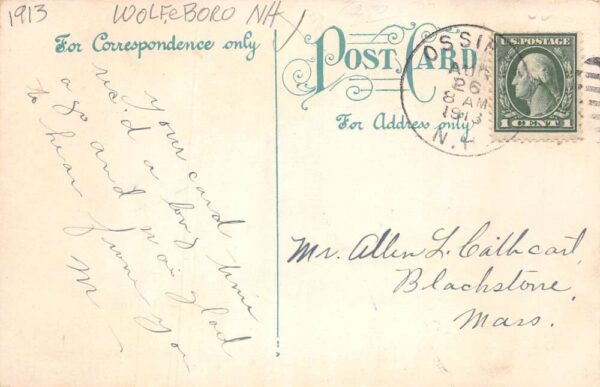 1913
WOLFEBORO NH
For Correspondence only
POST CARD
For Address only
OSSI
AUG
26
8 AM
1913
N.H
U.S. POSTAGE
1 CENT 1
Your card
rec'd a long time
ago and was glad
to hear from you
M —
Mr. Allen L. Cathcart,
Blackstone,
Mass.